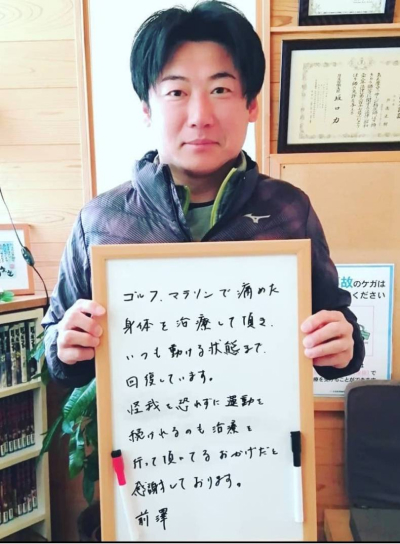 ゴルフ、マラソンで痛めた
身体を治療して頂き、
いつも動ける状態まで、
回復しています。
怪我を恐れずに運動を
続けれるのも治療を
行って頂いてるおかげだと
感謝しております。
前澤
MIZUNO
故のケガは
ください